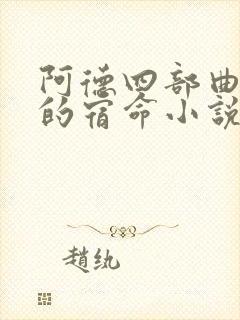 阿德四部曲
的宿命小說
趙紈